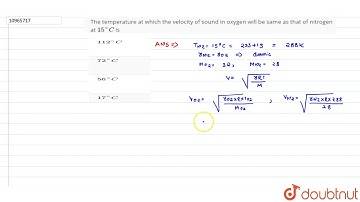 10965717
The temperature at which the velocity of sound in oxygen will be same as that of nitrogen
at 15°C is
112°C
72°C
56°C
17°C
ANS ⇒ TN2 = 15°C = 273+15 = 288K
γN2 = γO2 ⇒ diatomic
MO2 = 32, MN2 = 28
V = √γRT/M
VO2 = √γO2×R×TO2/MO2 , VN2 = √γN2×R×288/28
doubtnut